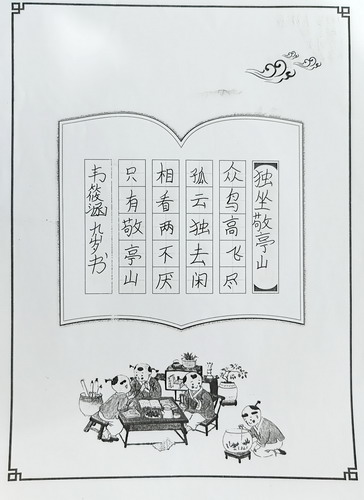 独坐敬亭山
众鸟高飞尽
孤云独去闲
相看两不厌
只有敬亭山
韦筱涵九岁书